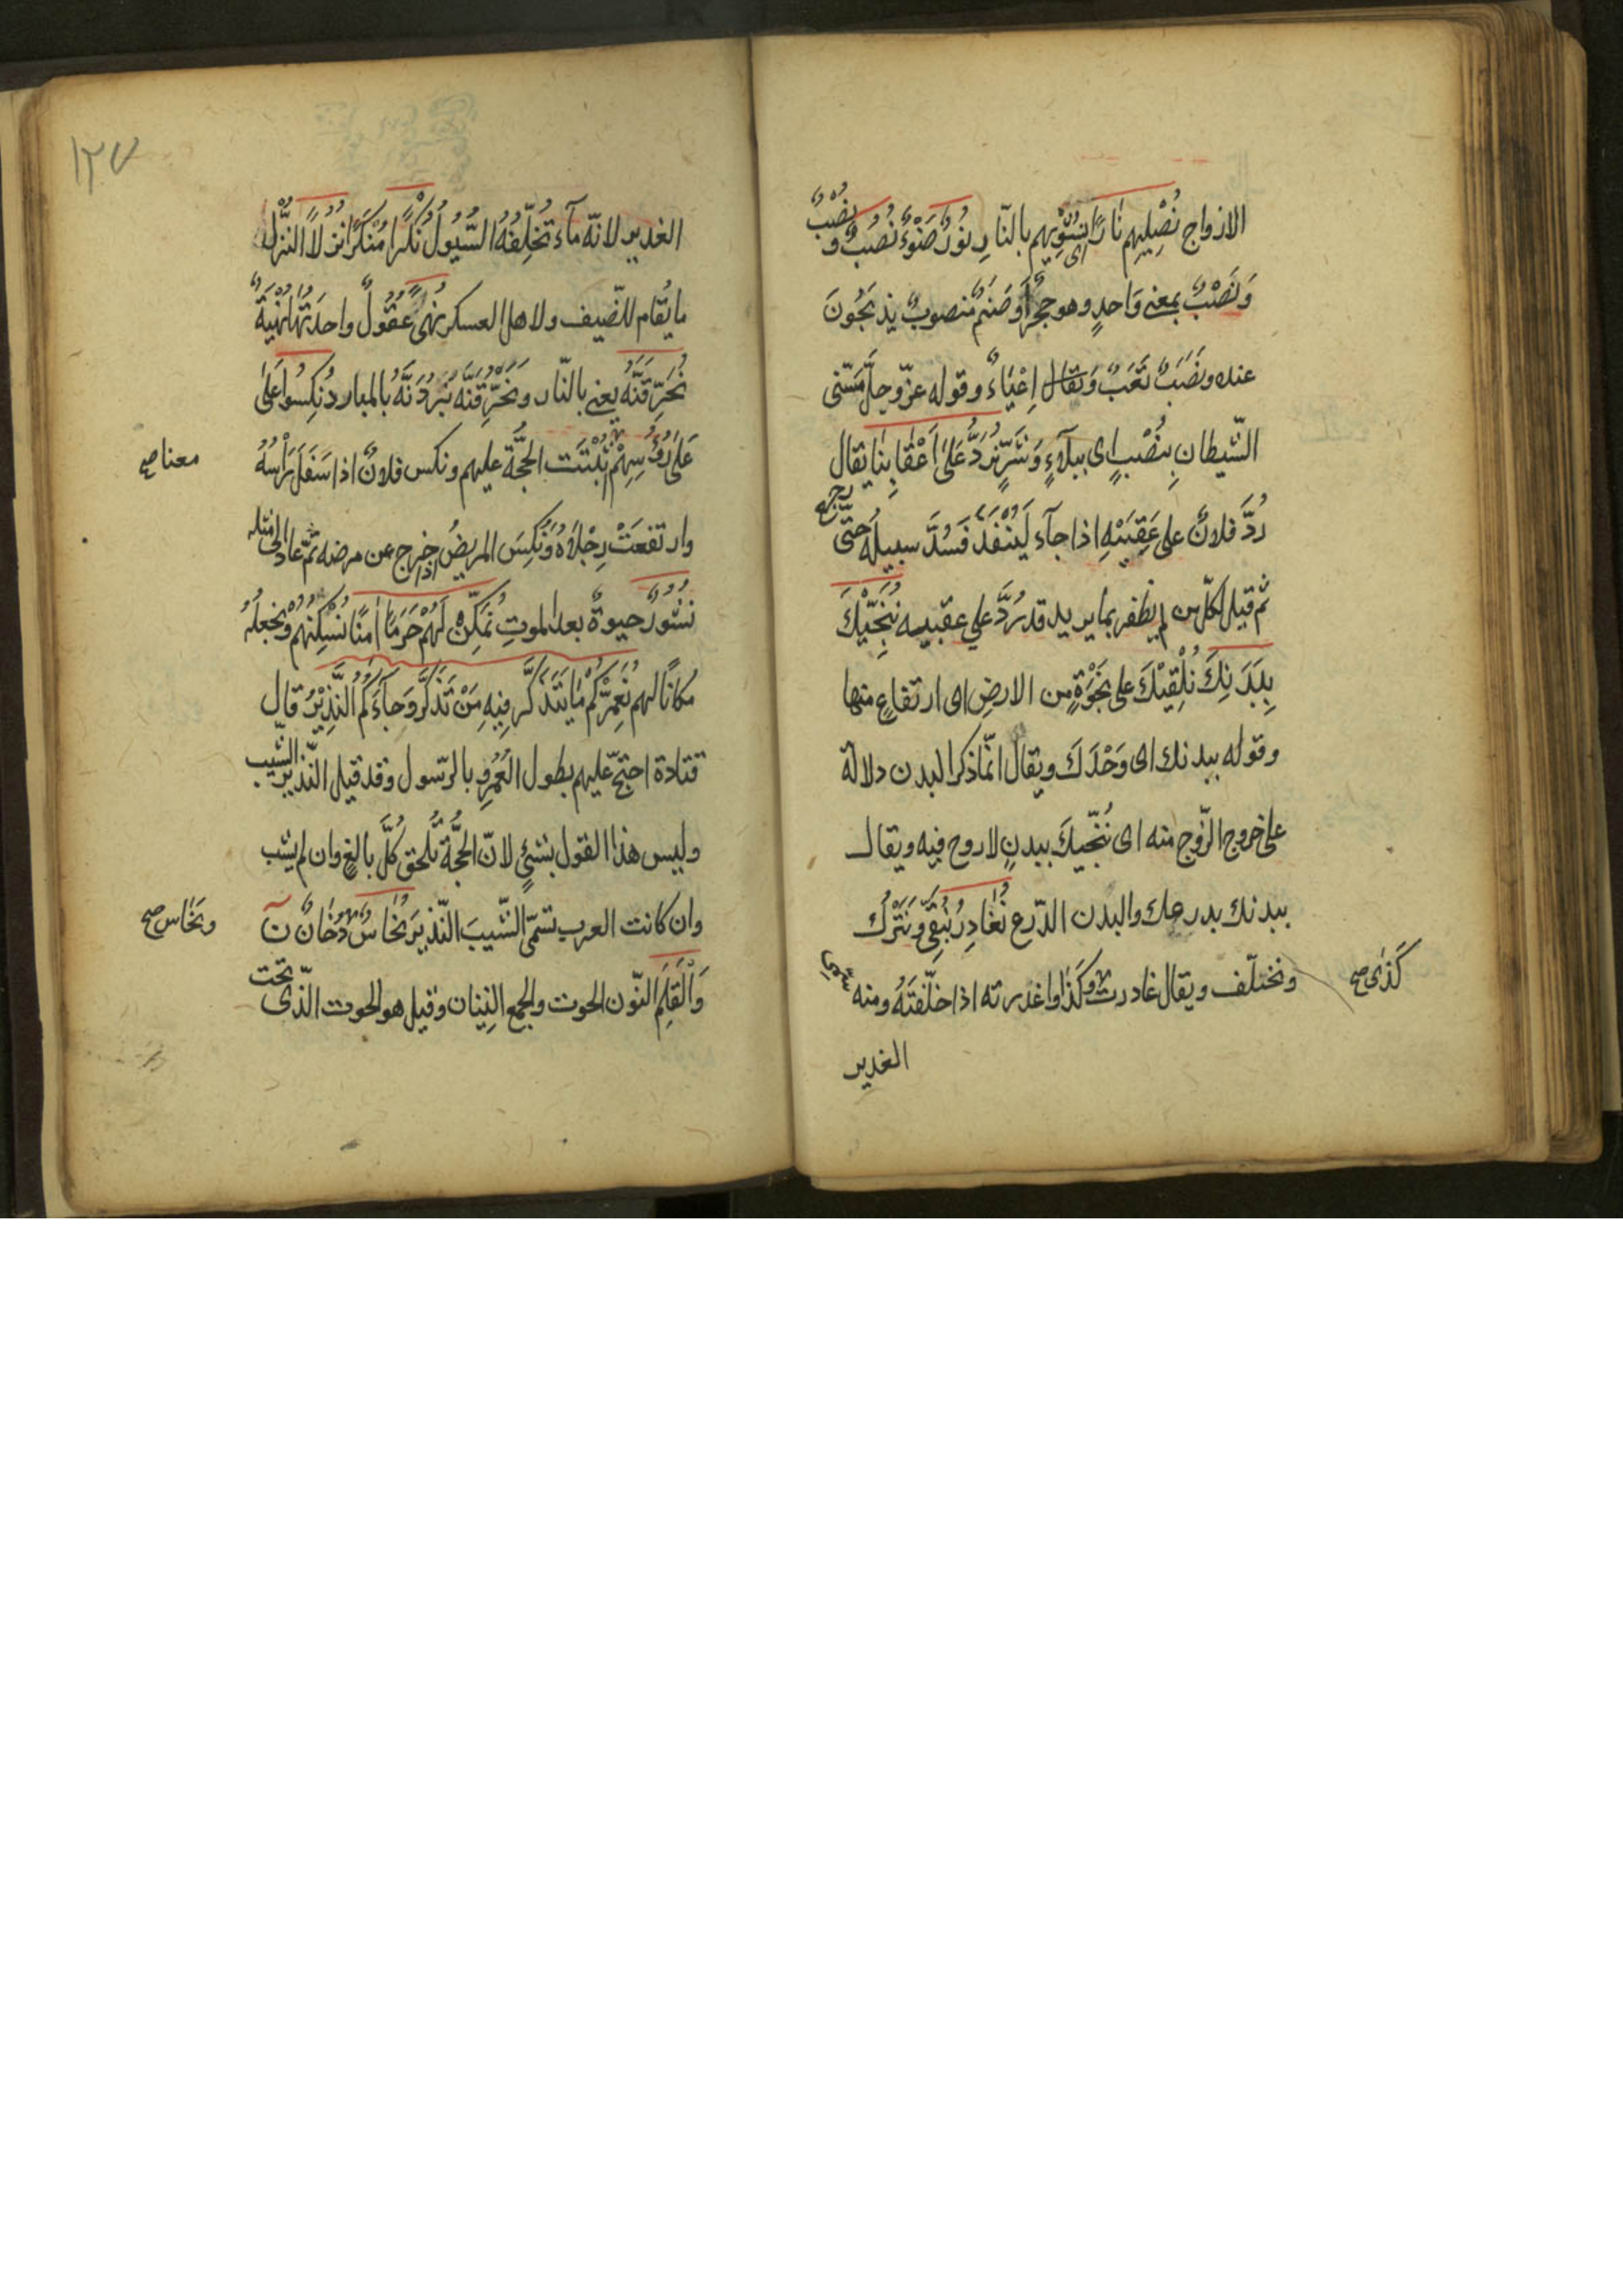 الازواج نُصْلِيهِم نَارًا اى نُشْوِيهم بالنّارِ نُورٌ ضَوْءٌ نُصُبٌ و نُصْبٌ
وَنَصْبٌ بمعنى وَاحدٍ وهو حجرٌ أو صَنَمٌ منصوبٌ يذبَحُونَ
عنده ونَصَبٌ تَعَبٌ وَيقال اِعْيَاءٌ وقوله عزّ وجلّ مَسّنى
الشّيطان بِنُصْبٍ اى ببلآءٍ وَشَرٍّ نُرَدُّ عَلىٰ اَعْقَابِنَا يقال
رُدَّ فلانٌ على عَقِبَيْهِ اذا جآء لِيَنْفُذَ فَسُدَّ سبيلُه حَتّى رجع
ثم قيل لكلّ من لم يظفر بما يريد قد رُدَّ على عقبيه نُنَجِّيْكَ
بِبَدَنِكَ نُلْقِيْكَ على نَجْوَةٍ من الارضِ اى ارتفاعٍ منها
وقوله ببدنك اى وَحْدَكَ ويقال انّما ذكر البدن دلالة
على خروج الرّوح منه اى نُنَجّيكَ ببدنٍ لا روح فيه ويقال
ببدنك بدرعك والبدن الدّرع نُغَادِرُ نُبْقِى وَنَتْرُكُ
ونخلّف ويقال غادرت كَذَا واغدرته اذا خلّفتَهُ ومنه سمّى
كَذٰى صح
الغدير
١٢٧
الغدير لانّه مآء تُخَلِّفُهُ السُّيُولُ نُكْرًا مُنْكَرًا نُزُلًا النُّزُل
ما يُقام للضّيف ولاهل العسكر نُهًى عُقُولٌ واحدَتُهَا نُهْيَةٌ
نُحَرِّقَنَّهُ يعنى بالنّار ونَحْرُقَنَّه نَبْرُدَنَّهُ بالمبارد نُكِسُوا عَلىٰ
عَلىٰ رُؤُسِهِمْ ثبتت الحجّة عليهم ونكس فلانٌ اذا سَفَلَ رَأْسُهُ
معنا صح
وارتفعَتْ رِجْلَاهُ وَنُكِسَ المريضُ اذا خرج عن مرضه ثمّ عاد الى مثله
نُشُورٌ حيوةٌ بعد الموتِ نُمَكِّنْ لَهُمْ حَرَمًا اٰمنًا نُسْكِنهُمْ وَنجعلهُ
مكانًا لهم نُعَمِّرْكُمْ مَا يَتَذَكَّر فِيهِ مَنْ تَذَكَّرَ وَجَآءَكُمُ النَّذِيْرُ قال
قتادة احتجّ عليهم بطول العُمُرِ وبالرّسول وقد قيل النّذير الشّيب
وليس هذا القول بشئٍ لانّ الحجّة تلحق كُلَّ بالغٍ وان لم يشب
وان كانت العرب تسمّى الشّيبَ النّذيرَ نُحَاسٌ دُخَانٌ نۤ
ونحَاس صح
وَالْقَلَمِ النّون الحوت والجمع النِينان وقيل هو الحوت الذّى تحت